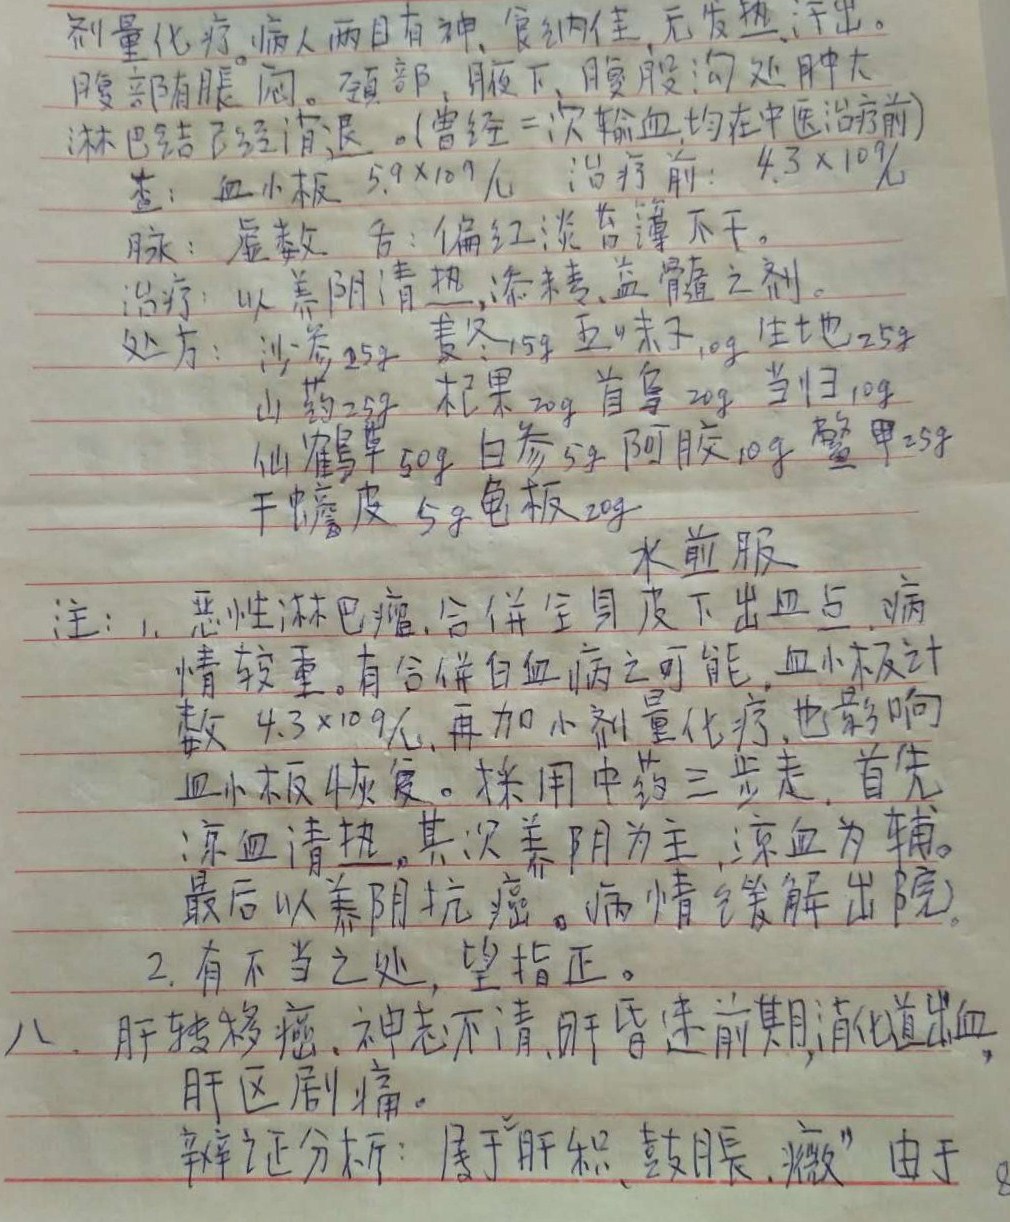 剂量化疗。病人两目有神、食纳佳、无发热、汗出。
腹部有胀闷。颈部、腋下、腹股沟处肿大
淋巴结已经消退。(曾经二次输血,均在中医治疗前)
查: 血小板 5.9×10⁹/L 治疗前: 4.3×10⁹/L
脉: 虚数 舌: 偏红淡苔薄不干。
治疗: 以养阴清热,添精、益髓之剂。
处方: 沙参25g 麦冬15g 五味子10g 生地25g
山药25g 杞果20g 首乌20g 当归10g
仙鹤草50g 白参5g 阿胶10g 鳖甲25g
干蟾皮5g 龟板20g
水煎服
注: 1. 恶性淋巴瘤,合併全身皮下出血点,病
情较重。有合併白血病之可能,血小板计
数 4.3×10⁹/L,再加小剂量化疗,也影响
血小板恢复。採用中药三步走,首先
凉血清热。其次养阴为主,凉血为辅。
最后以养阴抗癌。病情缓解出院。
2. 有不当之处,望指正。
八. 肝转移癌、神志不清、肝昏迷前期,消化道出血,
肝区剧痛。
辩证分析: 属于"肝积、鼓胀、癥" 由于
8